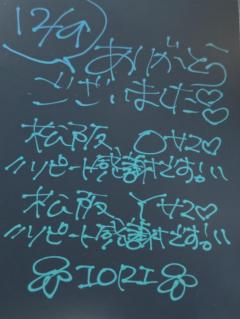 12/9
ありがとう
ございました♡
松阪 〇サ20♡
リピート感謝です。!!
松阪 Yサ20♡
リピート感謝です。!!
IORI